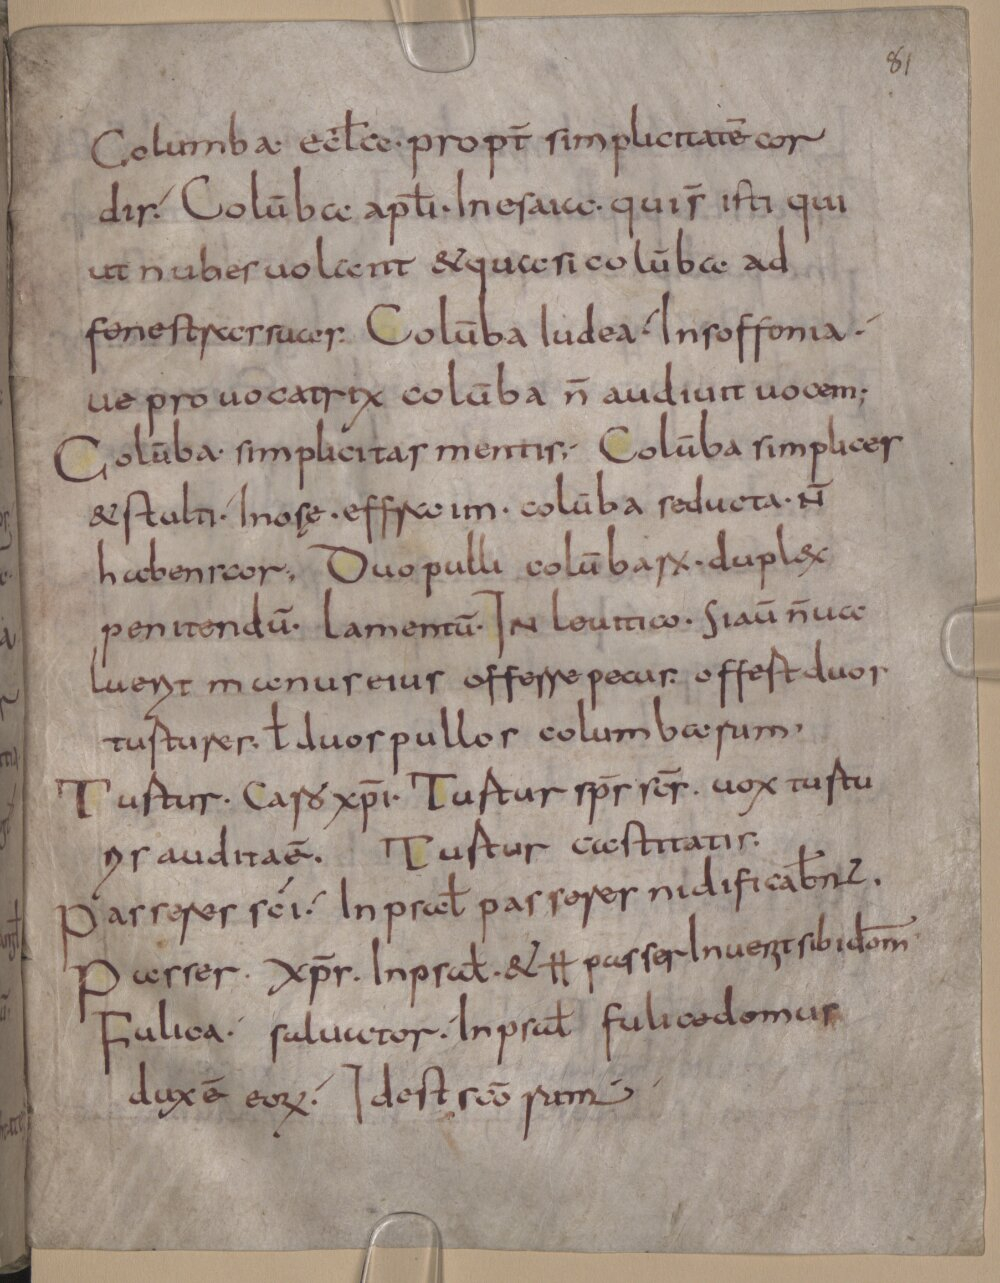 81
Columba· eccł̄ae· propt̄ simplicitatē cor
dis·́ Colūbae apłi· In esaiae· quis̄ isti qui
ut nubes uolant &quasi colūbae ad
fenestras suas· Colūba Iudea·́ In soffonia·́
ue prouocatrix colūba n̄ audiuit uocem;
Colūba· simplicitas mentis;· Colūba simplices
& stulti·́ In osę· effraim· colūba seducta· N̄
habens cor;· Duo pulli colūbaꝝ· duplex
penitendū· lamentū· IN leuitico· Siaū n̄ ua
luerit manus eius offerre pecus· offest duos
turtures· ł duos pullos columbarum·
Turtur· Caro xp̄i· Turtur sp̄s sc̄s· uox turtu
ris audita ē· Turtur castitatis·
Passeres sc̄i·́ In psał passeres nidificab̄nt·
Passer· xp̄s· In psał· & passer Inuenit sibi dom̄
Fulica·́ saluator·́ In psał fulicae domus
dux ē eoꝝ·́ Idest sc̄o rum·́